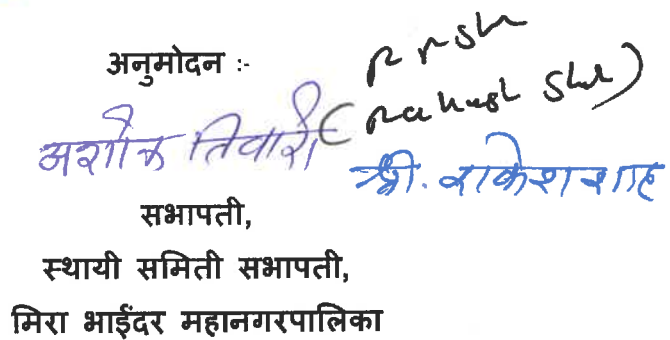 अनुमोदन :-
R R Shah
(Rakesh Shah)
अशोक तिवारी
श्री. राकेश शाह
सभापती,
स्थायी समिती सभापती,
मिरा भाईंदर महानगरपालिका